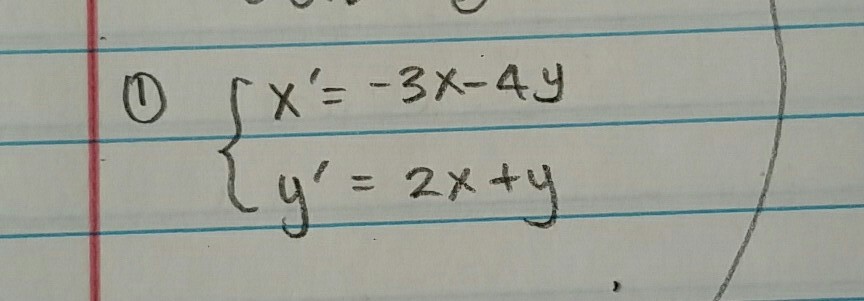 ① { x' = -3x - 4y
y' = 2x + y